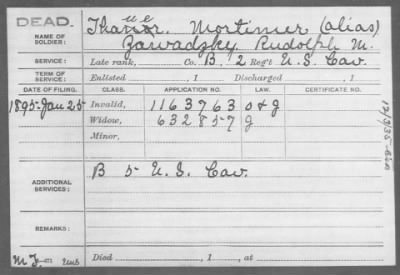 DEAD.
NAME OF SOLDIER:
Mortimer (alias)
Zawadzky Rudolph M.
SERVICE: Late rank, Co. B, 2 Reg't U.S. Cav.
TERM OF SERVICE: Enlisted , 1 Discharged , 1
DATE OF FILING. CLASS. APPLICATION NO. LAW. CERTIFICATE NO.
1895-Jan 25 Invalid, 1163763
Widow, 632857 g
Minor,
ADDITIONAL SERVICES: B 5 U.S. Cav.
REMARKS:
Died , 1 , at